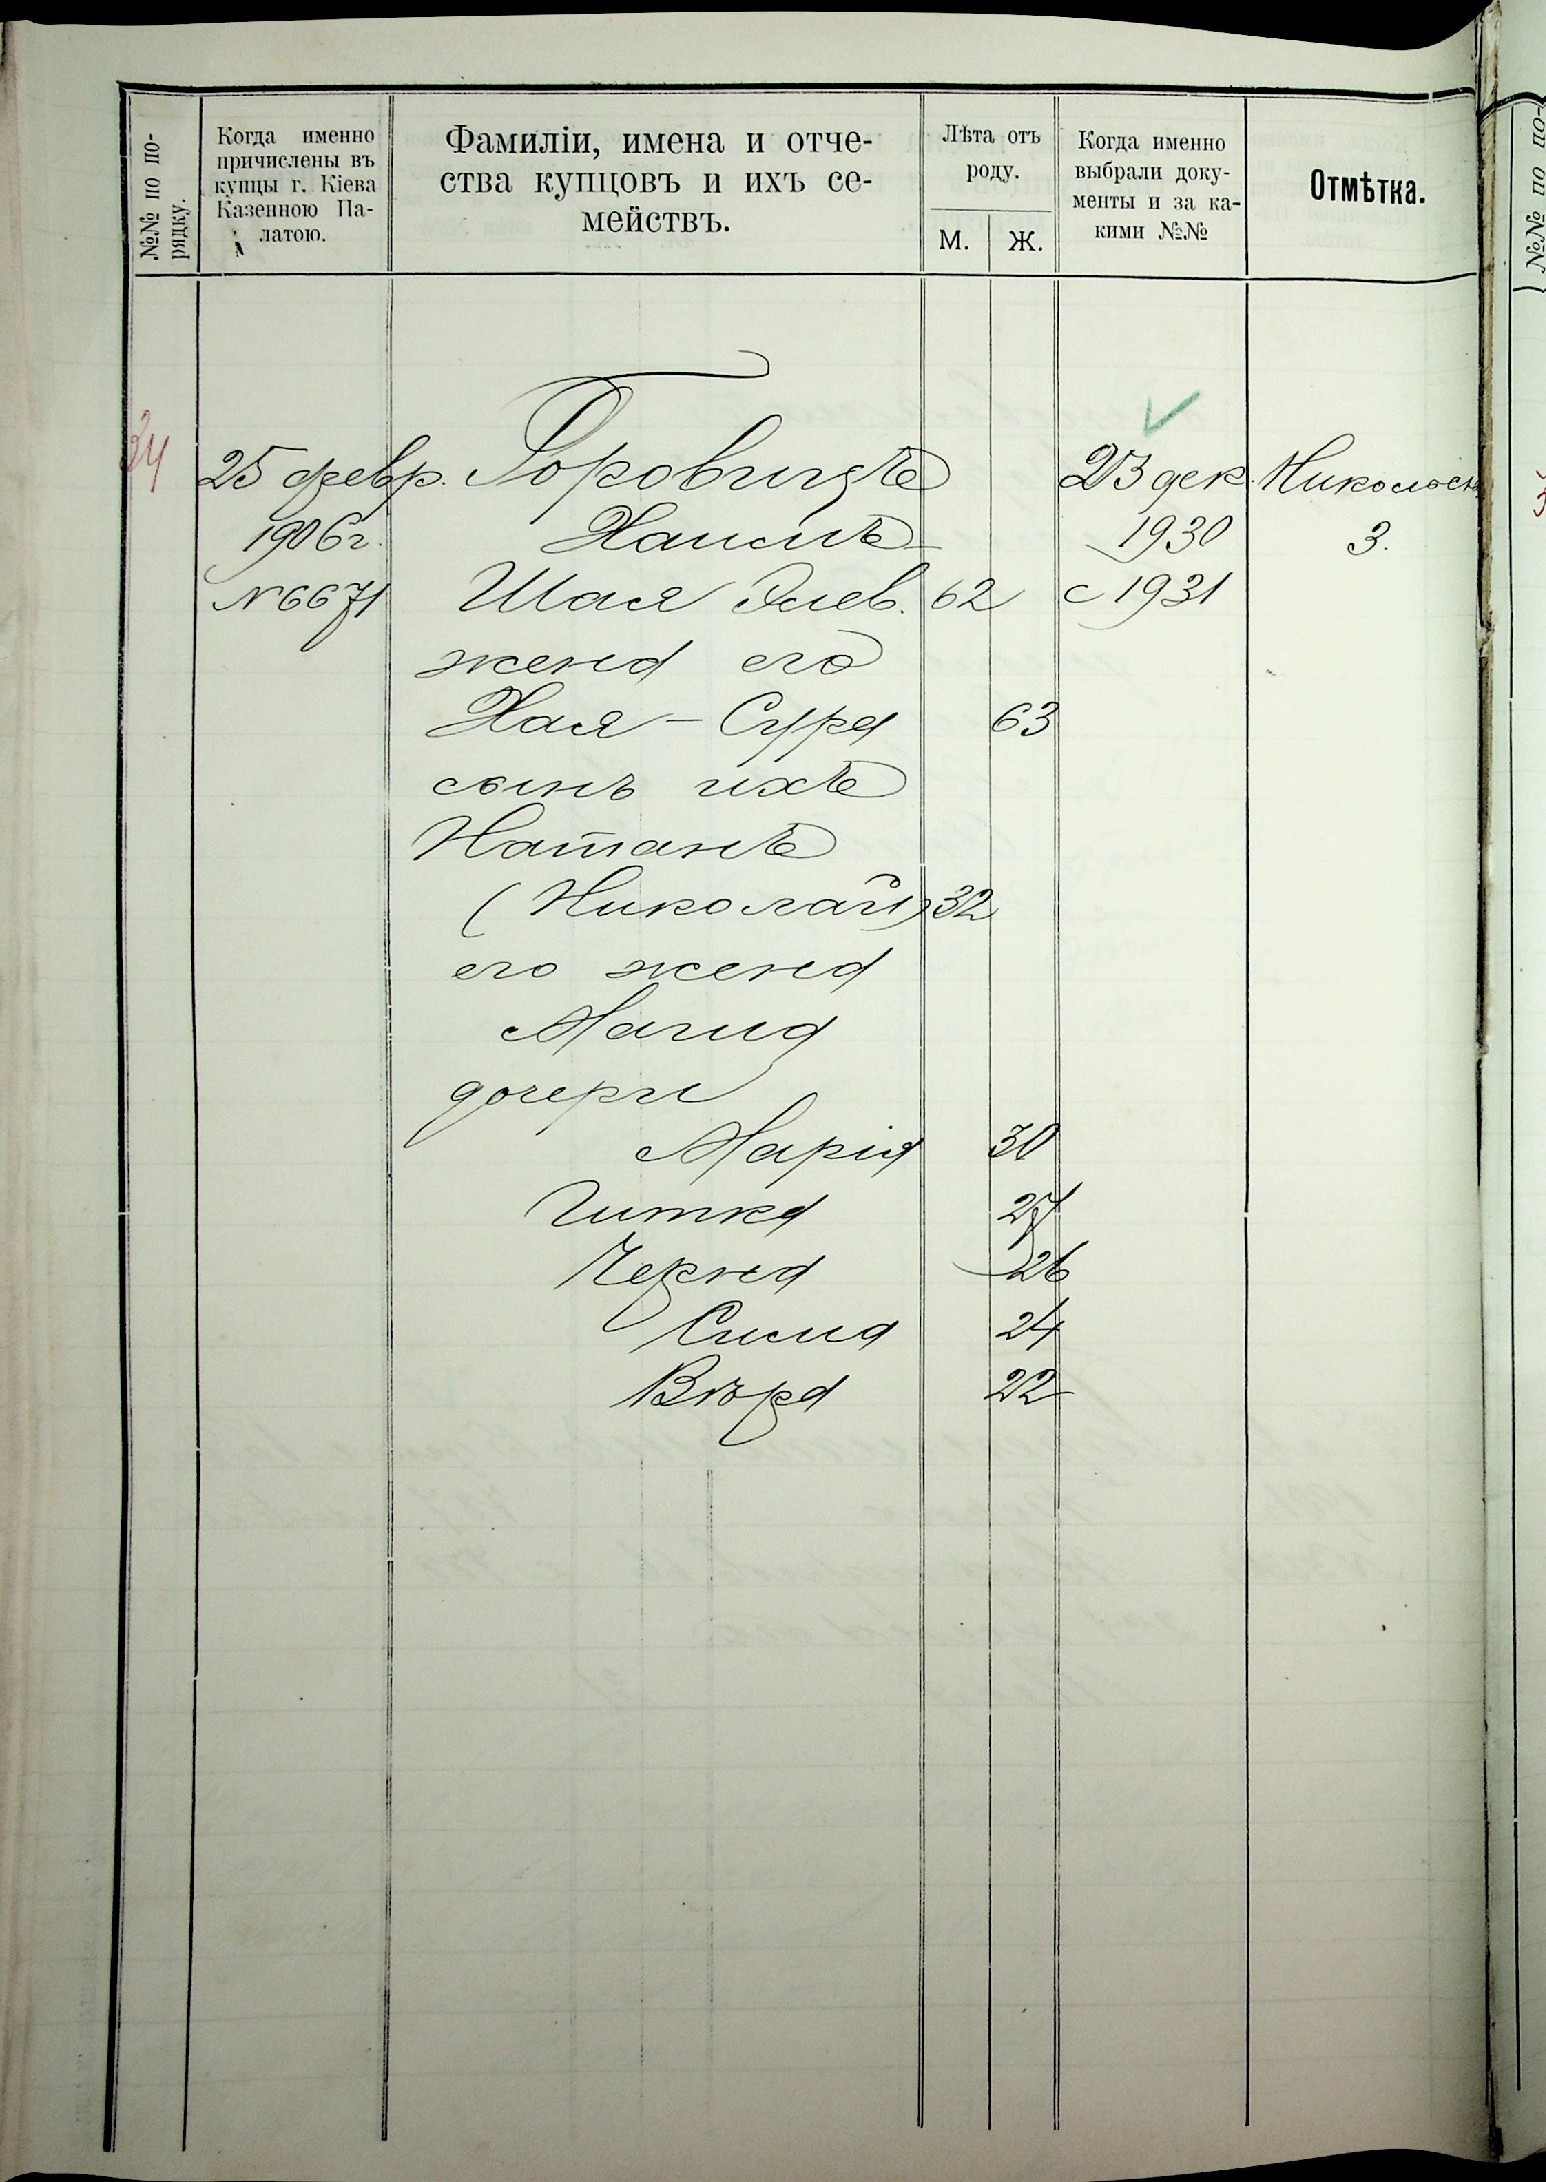 №№ по по-
рядку.
Когда именно
причислены въ
купцы г. Кіева
Казенною Па-
латою.
Фамиліи, имена и отче-
ства купцовъ и ихъ се-
мействъ.
Лѣта отъ
роду.
М. Ж.
Когда именно
выбрали доку-
менты и за ка-
кими №№
Отмѣтка.
34 25 февр. Горовицъ 23 дек.
1906 г. Хаимъ- 1930 3.
№ 6671 Шая Элев. 62 с 1931
жена его
Хая-Сура 63
сынъ ихъ
Натанъ
(Николай) 32
его жена
дочери
Марія 30
Гитка 27
Черна 26
Сима 24
Вѣра 22
№№ по по-